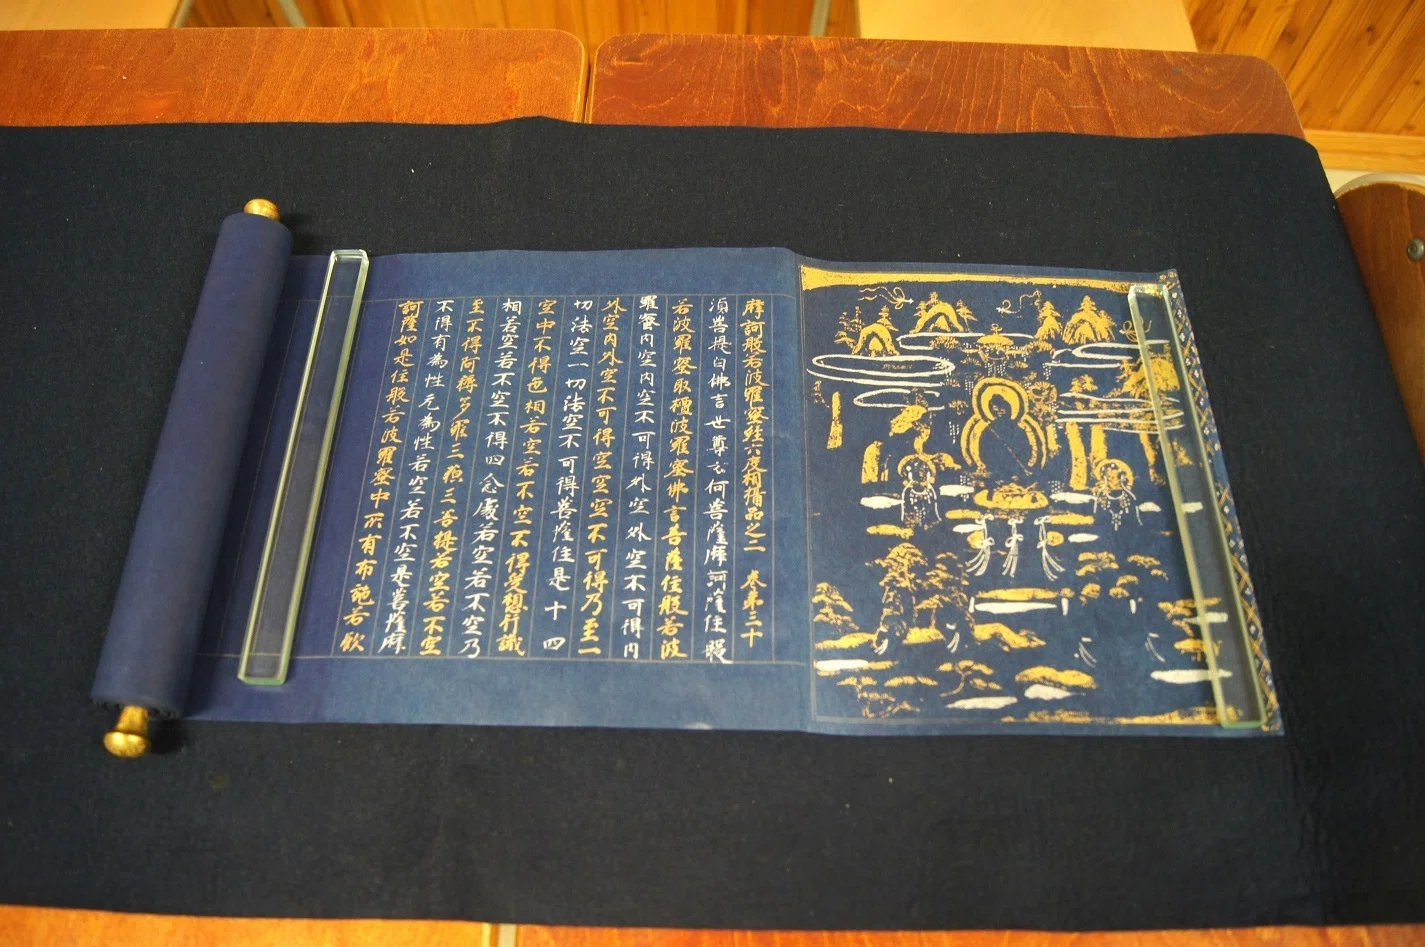 摩訶般若波羅蜜経六度相攝品之二 巻第三十
須菩提白佛言世尊云何菩薩摩訶薩住般
若波羅蜜取檀波羅蜜佛言菩薩住般若波
羅蜜内空内空不可得外空外空不可得内
外空内外空不可得空空空不可得乃至一
切法空一切法空不可得菩薩住是十四
空中不得色相若空若不空不得受想行識
相若空若不空不得四念處若空若不空乃
至不得阿耨多羅三藐三菩提若空若不空
不得有為性无為性若空若不空是菩薩摩
訶薩如是住般若波羅蜜中所有布施若飲